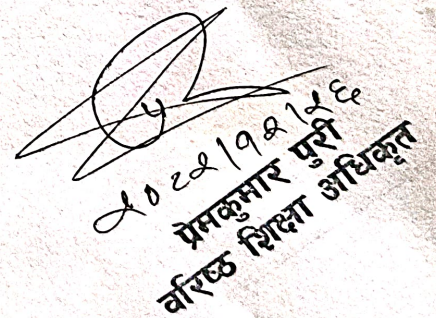 २०८२|१२|२६
प्रेमकुमार पुरी
वरिष्ठ शिक्षा अधिकृत